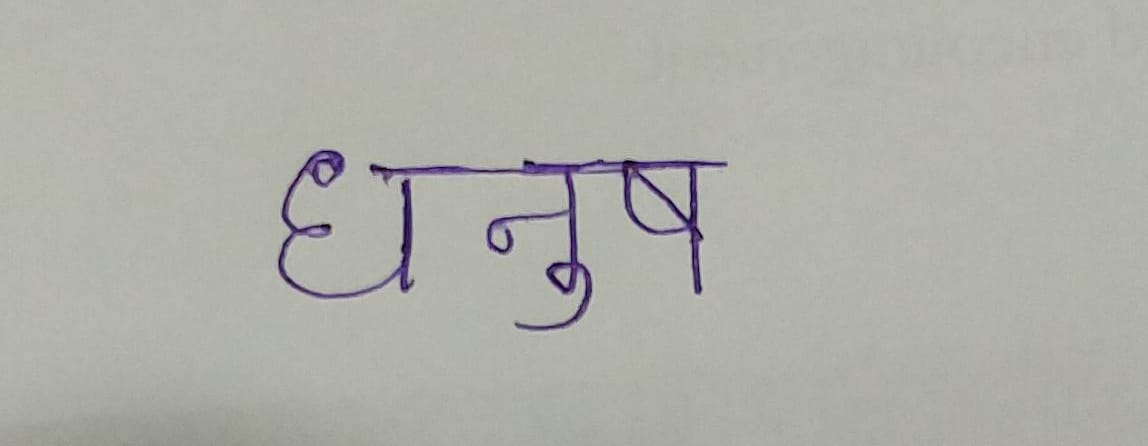 धनुष